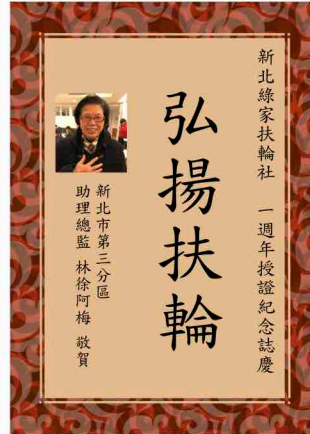 新北綠家扶輪社　一週年授證紀念誌慶
弘揚扶輪
新北市第三分區
助理總監　林徐阿梅　敬賀